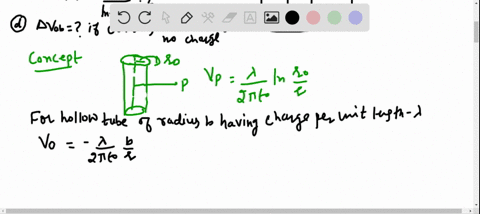 (d) ΔV₀b = ? if
no charge
Concept
r₀
P
Vp = λ/2πϵ₀ ln r₀/r
For hollow tube of radius b having charge per unit length -λ
V₀ = - λ/2πϵ₀ b/r